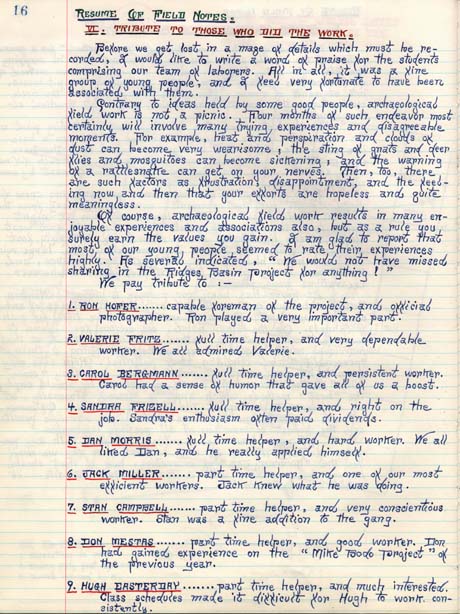 16
RESUME OF FIELD NOTES.
VI. TRIBUTE TO THOSE WHO DID THE WORK.
Before we get lost in a maze of details which must be re-
corded, I would like to write a word of praise for the students
comprising our team of laborers. All in all, it was a fine
group of young people, and I feel very fortunate to have been
associated with them.
Contrary to ideas held by some good people, archaeological
field work is not a picnic. Four months of such endeavor most
certainly will involve many trying experiences and disagreeable
moments. For example, heat and perspiration and clouds of
dust can become very wearisome, the sting of gnats and deer
flies and mosquitoes can become sickening, and the warning
of a rattlesnake can get on your nerves. Then, too, there
are such factors as frustration, disappointment, and the feel-
ing now and then that your efforts are hopeless and quite
meaningless.
Of course, archaeological field work results in many en-
joyable experiences and associations also, but as a rule you
surely earn the values you gain. I am glad to report that
most of our young people seemed to rate their experiences
highly. As several indicated, "We would not have missed
sharing in the Ridges Basin Project for anything!"
We pay tribute to :-
1. RON HOFER....... capable foreman of the project, and official
photographer. Ron played a very important part.
2. VALERIE FRITZ....... full time helper, and very dependable
worker. We all admired Valerie.
3. CAROL BERGMANN....... full time helper, and persistent worker.
Carol had a sense of humor that gave all of us a boost.
4. SANDRA FRIZELL....... full time helper, and right on the
job. Sandra's enthusiasm often paid dividends.
5. DAN MORRIS....... full time helper, and hard worker. We all
liked Dan, and he really applied himself.
6. JACK MILLER....... part time helper, and one of our most
efficient workers. Jack knew what he was doing.
7. STAN CAMPBELL....... part time helper, and very conscientious
worker. Stan was a fine addition to the gang.
8. DON MESTAS....... part time helper, and good worker. Don
had gained experience on the "Mike Bodo Project" of
the previous year.
9. HUGH EASTERDAY....... part time helper, and much interested.
Class schedules made it difficult for Hugh to work con-
sistently.